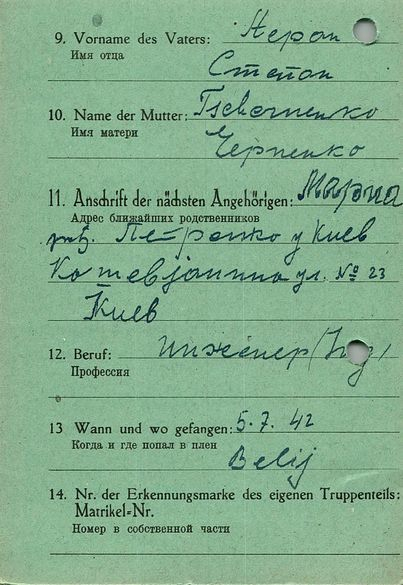 9. Vorname des Vaters:
Имя отца
Степан
10. Name der Mutter: Tschernenko
Имя матери
Черненко
11. Anschrift der nächsten Angehörigen: Мария
Адрес ближайших родственников
Киев
ул. № 23
Киев
12. Beruf: инженер
Профессия
13 Wann und wo gefangen: 5. 7. 42
Когда и где попал в плен
Belij
14. Nr. der Erkennungsmarke des eigenen Truppenteils:
Matrikel=Nr.
Номер в собственной части